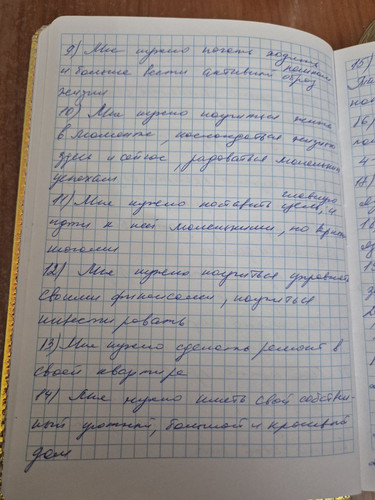 9) Мне нужно начать ходить пешком
и больше вести активный образ
жизни
10) Мне нужно научиться жить
в моменте, наслаждаться жизнью
здесь и сейчас, радоваться маленьким
успехам
11) Мне нужно поставить главную цель, и
идти к ней маленькими, но
шагами
12) Мне нужно научиться управлять
своими финансами, научиться
инвестировать
13) Мне нужно сделать ремонт в
своей квартире
14) Мне нужно иметь свой собствен-
ный уютный, большой и красивый
дом
15)
16)
17)